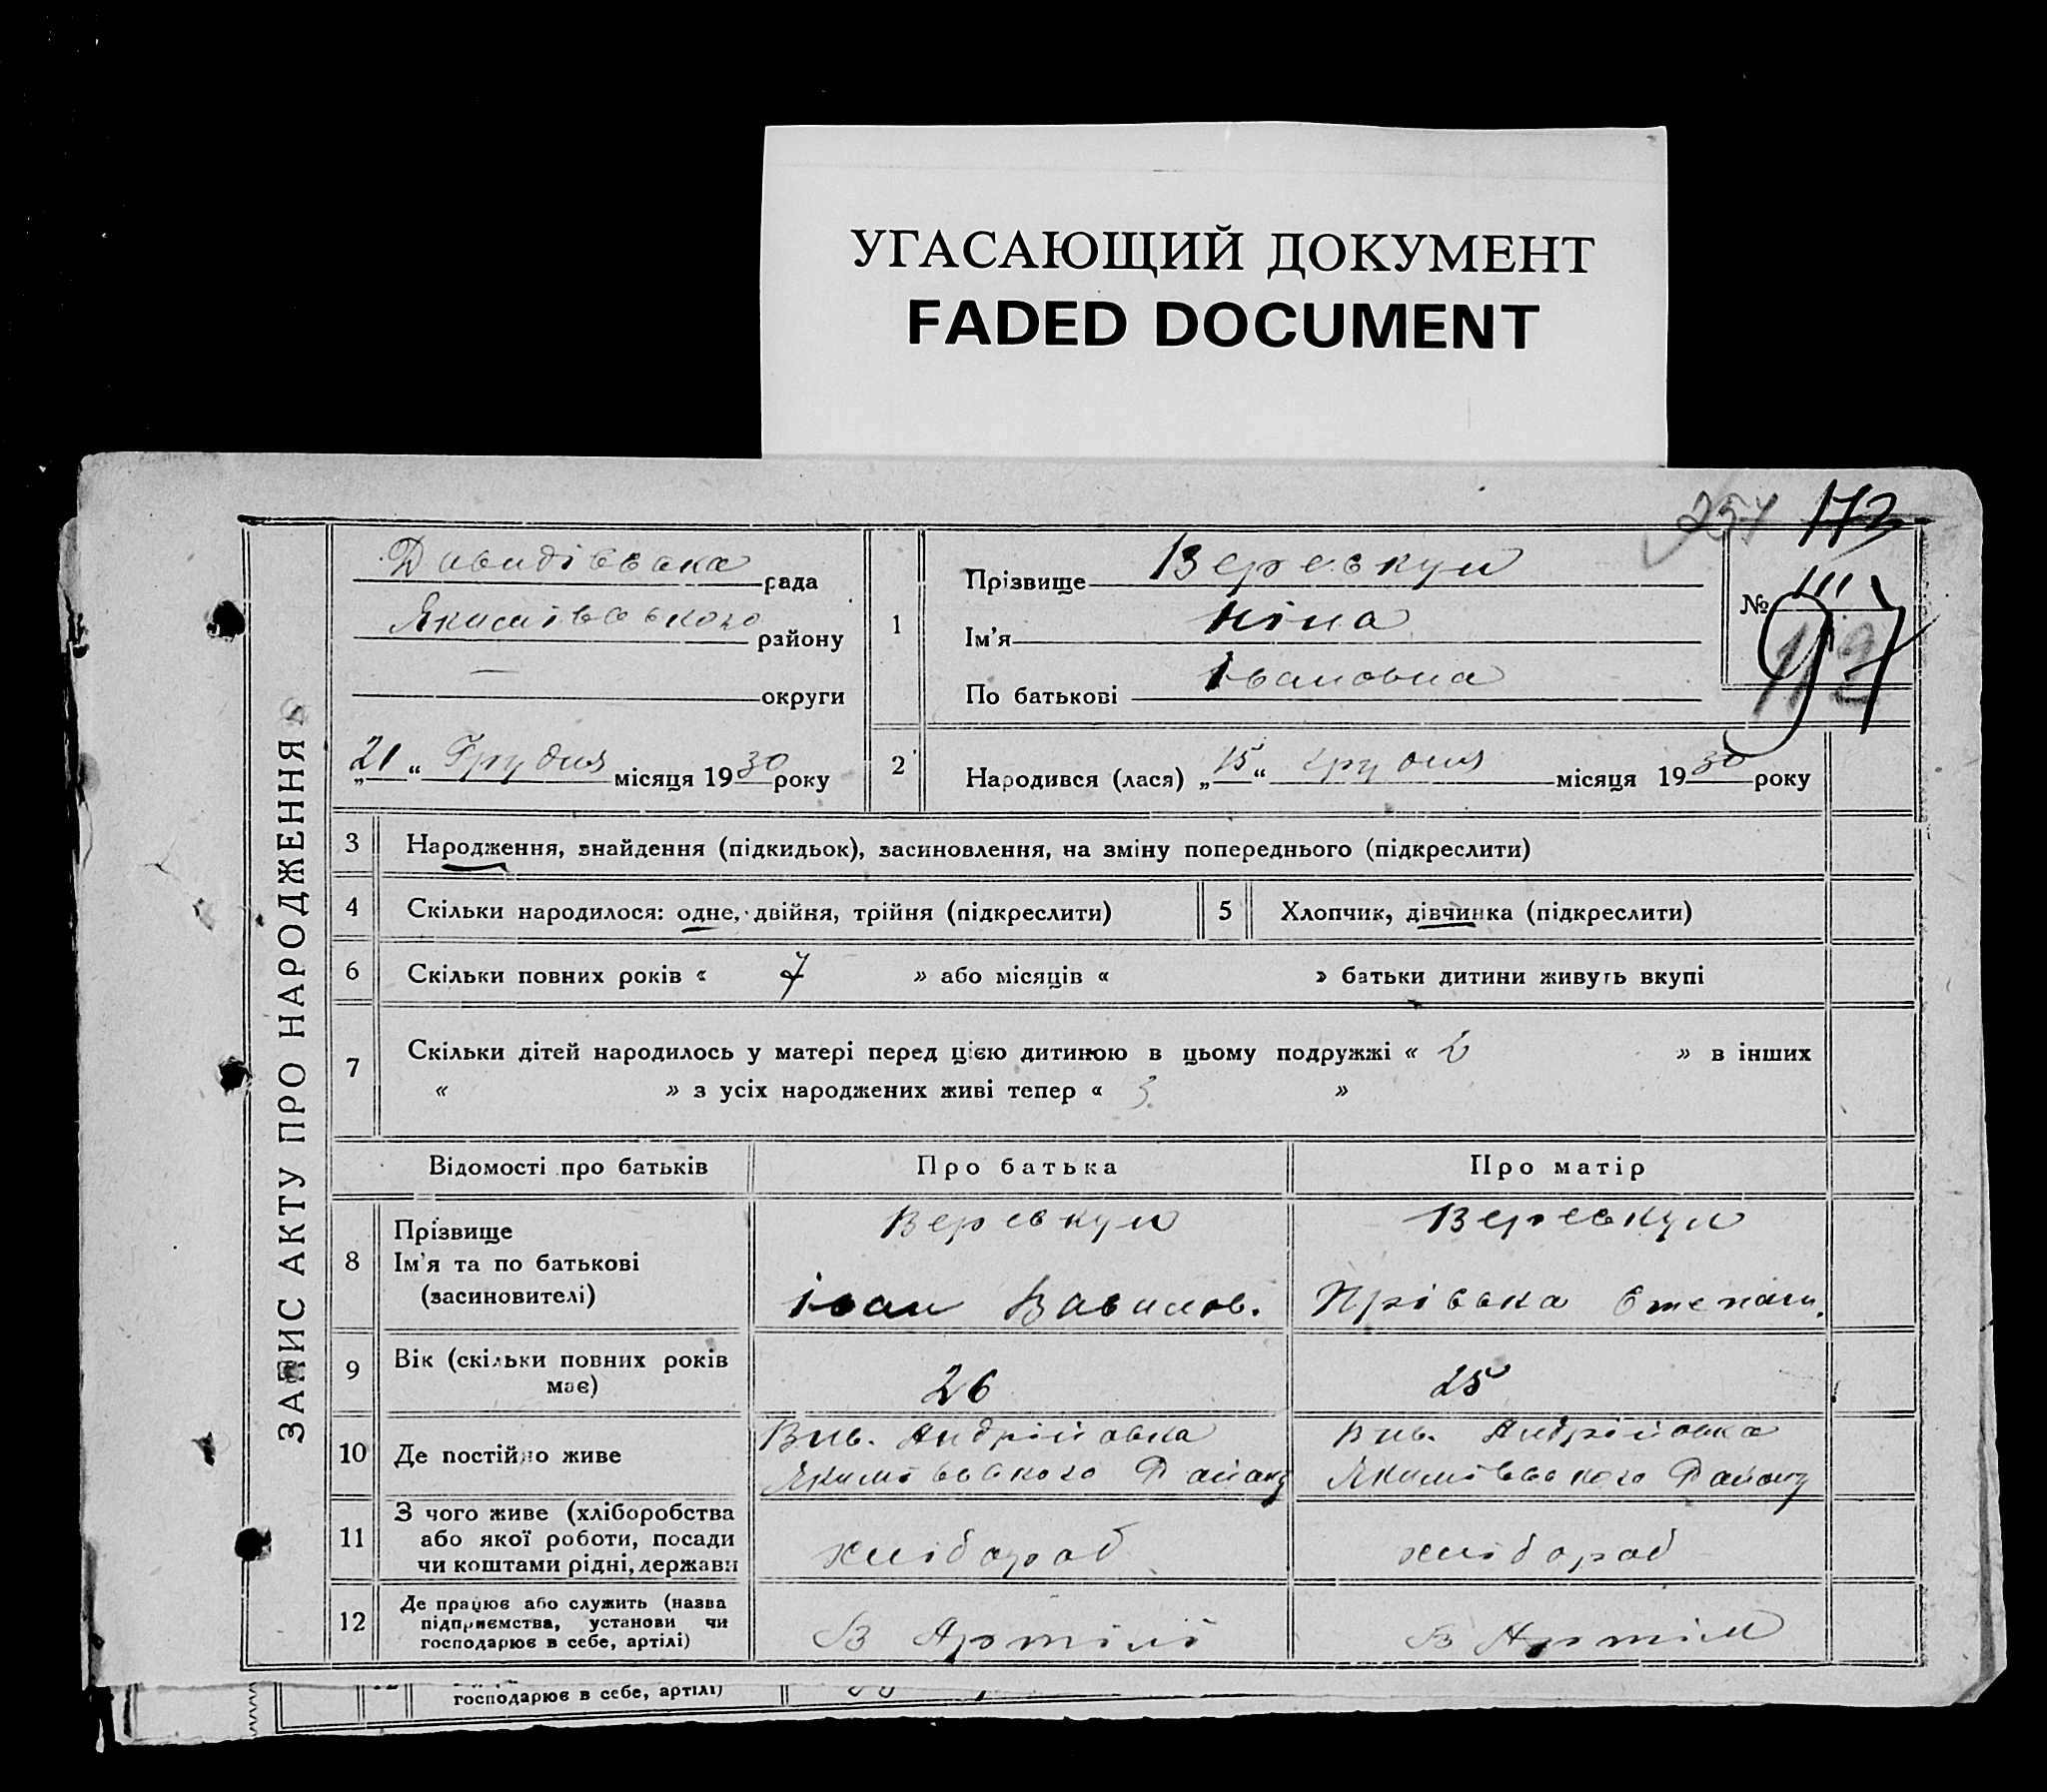 УГАСАЮЩИЙ ДОКУМЕНТ
FADED DOCUMENT
257 172
ЗАПИС АКТУ ПРО НАРОДЖЕННЯ
Давидівська рада
Якимівського району
— округи
„21“ Грудня місяця 1930 року
1
Прізвище Веревкул
Ім'я Ніна
По батькові Івановна
№ 111
112
97
2
Народився (лася) „15“ грудня місяця 1930 року
3 Народження, знайдення (підкидьок), засиновлення, на зміну попереднього (підкреслити)
4 Скільки народилося: одне, двійня, трійня (підкреслити)
5 Хлопчик, дівчинка (підкреслити)
6 Скільки повних років « 7 » або місяців « » батьки дитини живуть вкупі
7 Скільки дітей народилось у матері перед цією дитиною в цьому подружжі « 2 » в інших
« » з усіх народжених живі тепер « 3 »
Відомості про батьків Про батька Про матір
8 Прізвище
Ім'я та по батькові
(засиновителі)
Веревкул
Іван Вавилов.
Веревкул
Прівька Степан.
9 Вік (скільки повних років
має)
26
25
10 Де постійно живе
Вив. Андрійовка
Якимівського Району
Вив. Андрійовка
Якимівського Району
11 З чого живе (хліборобства
або якої роботи, посади
чи коштами рідні, держави
хлібороб
хлібороб
12 Де працює або служить (назва
підприємства, установи чи
господарює в себе, артілі)
В Артілі
В Артілі
господарює в себе, артілі)